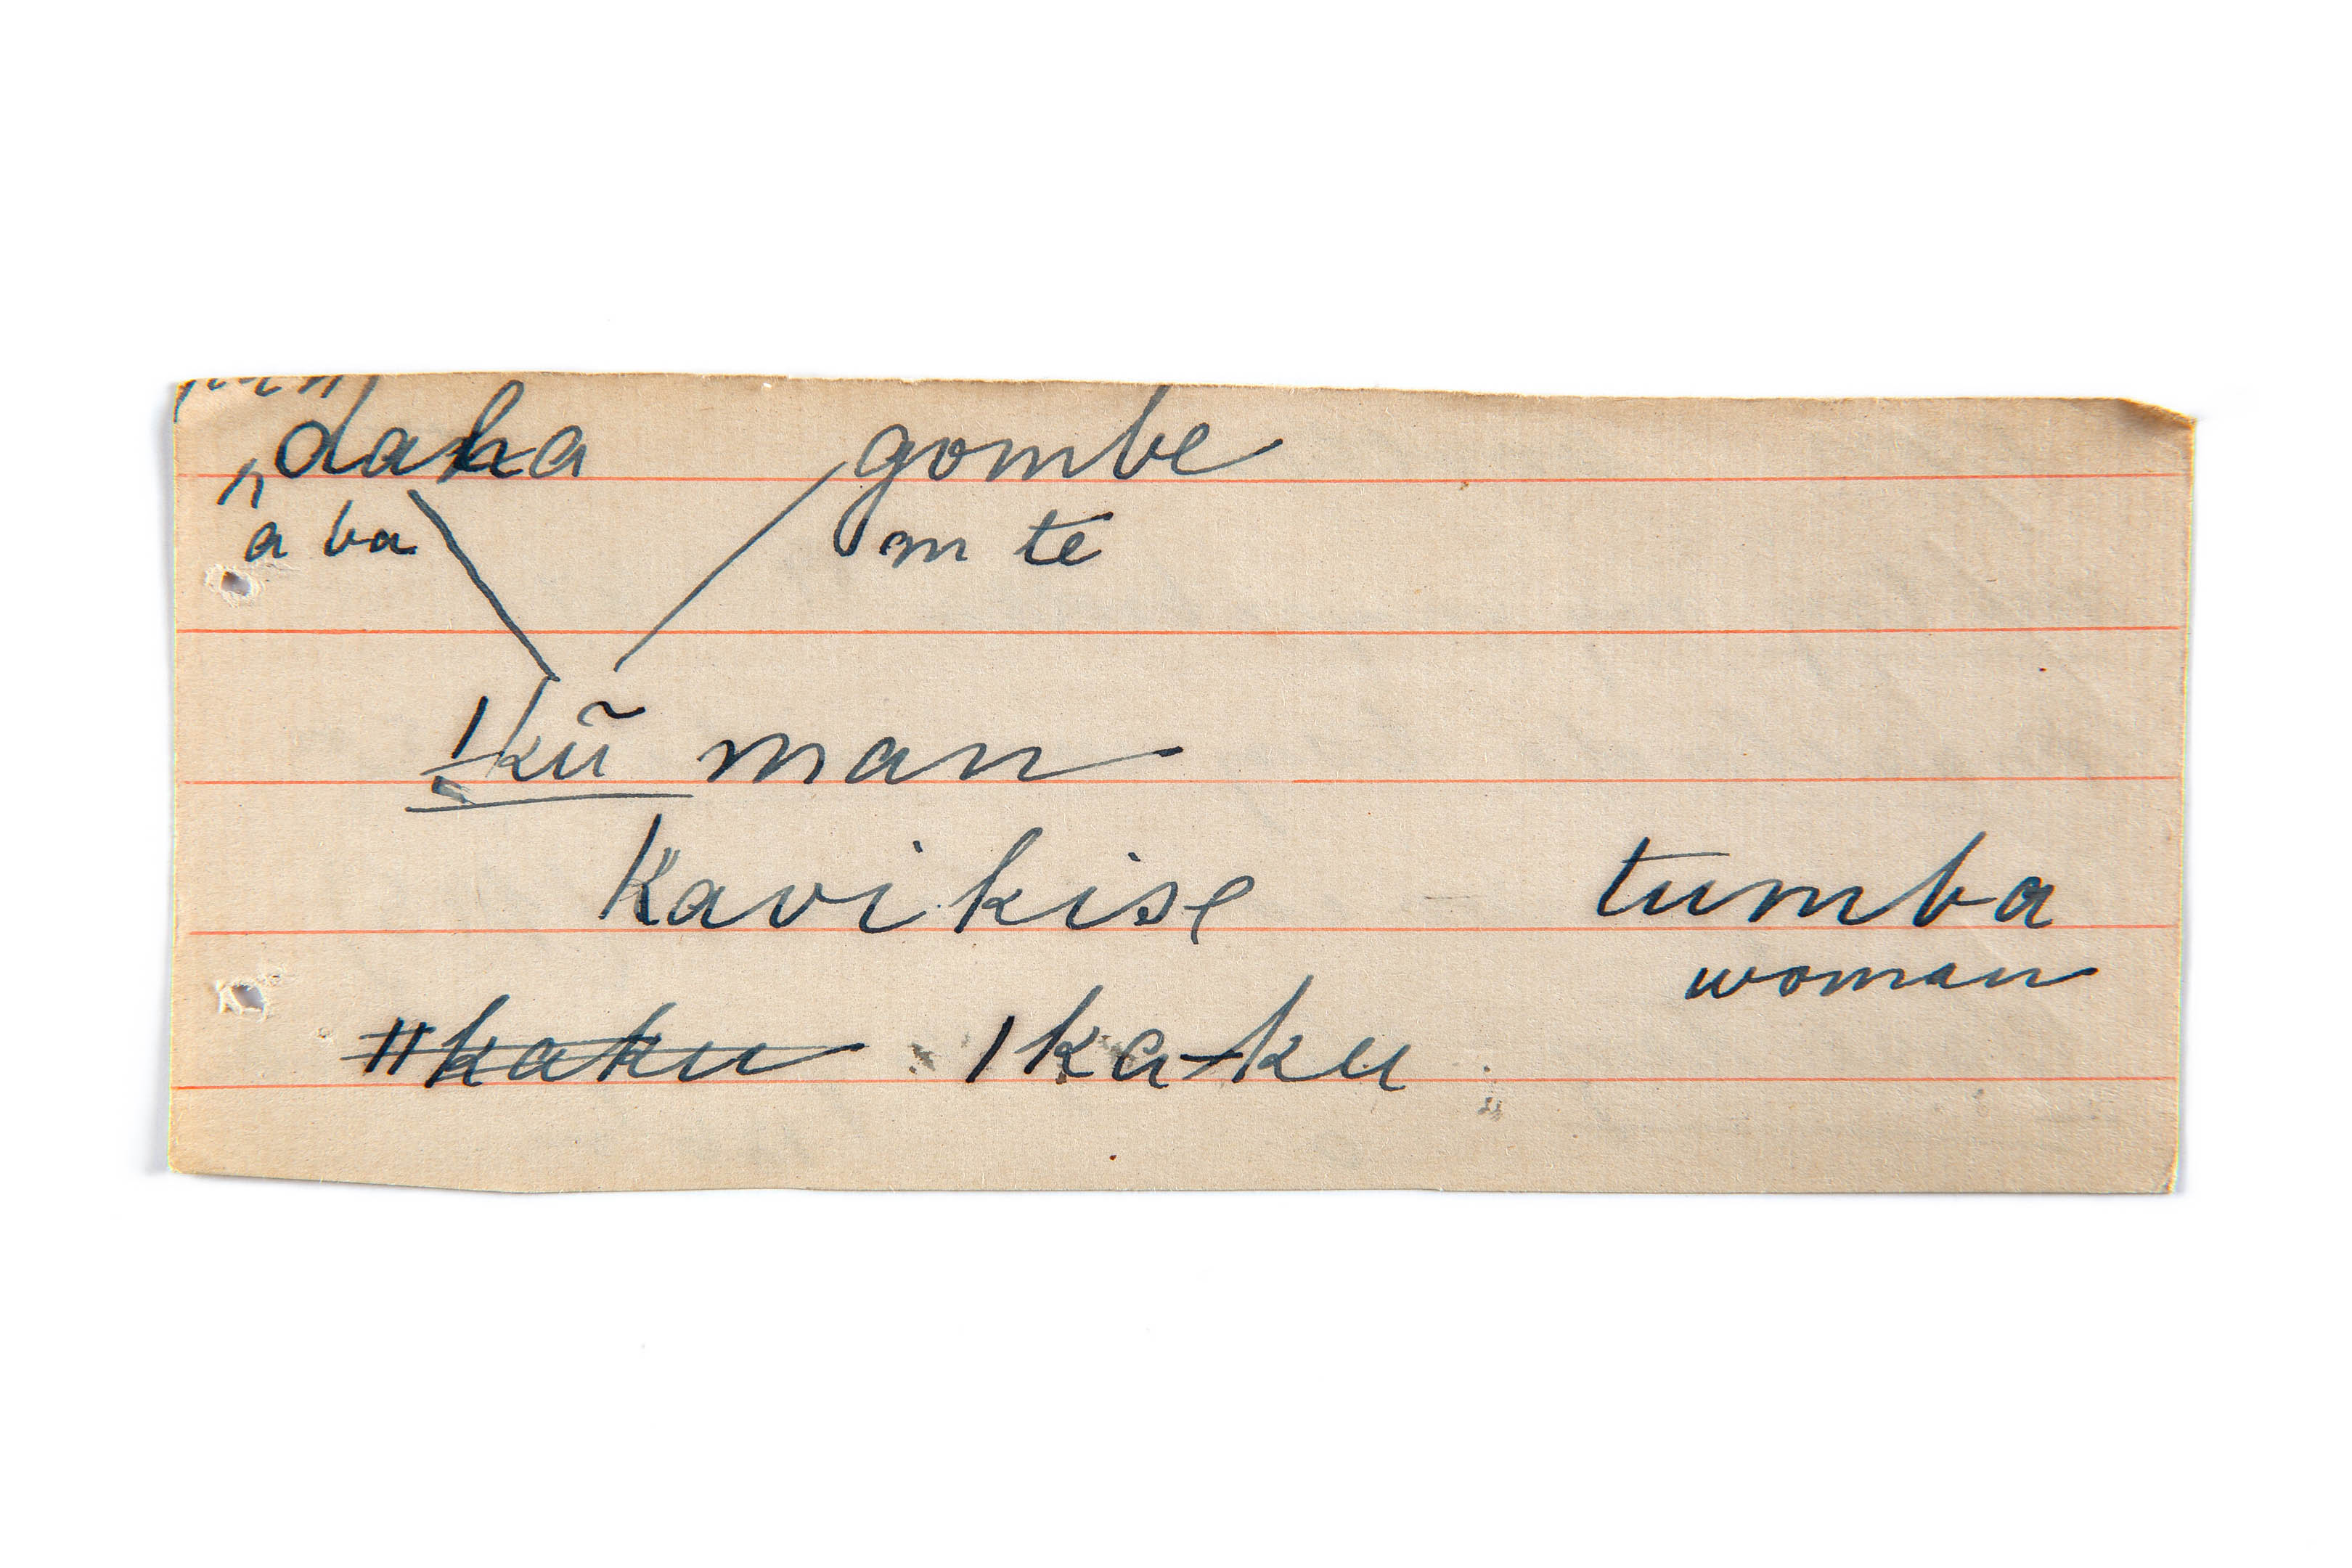 daha gombe
a ba m te
|kũ man
Kavikise tumba
woman
ǁkaku |ka-ku